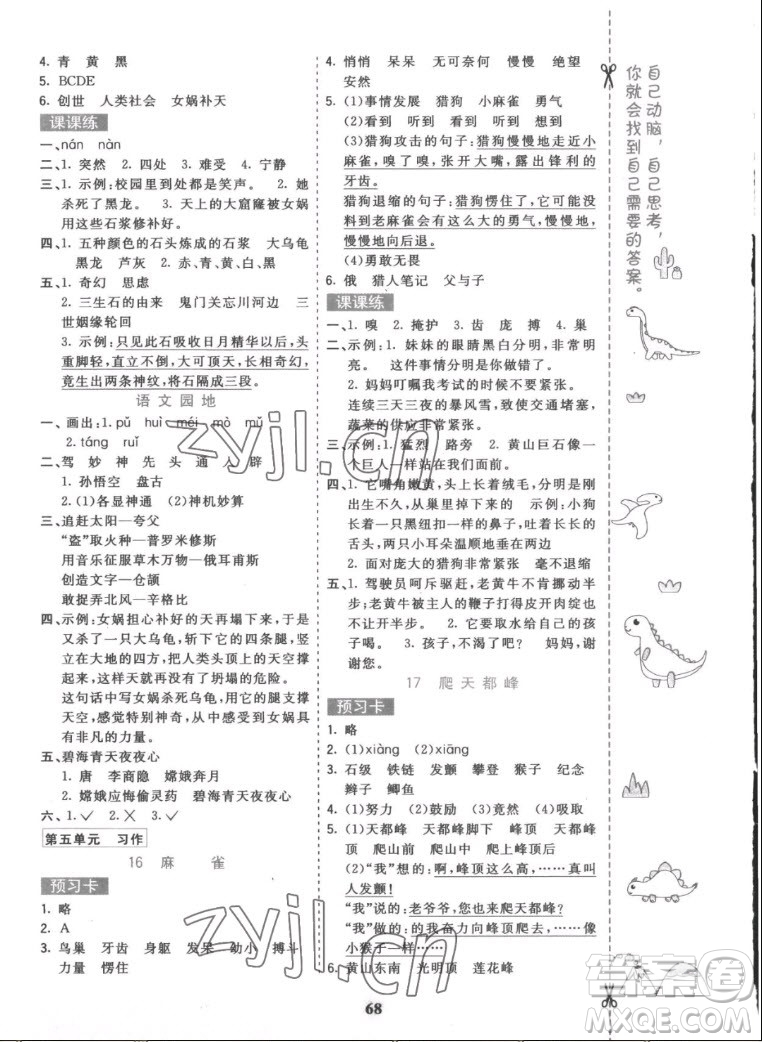 4. 青 黄 黑
5. BCDE
6. 创世 人类社会 女娲补天
课课练
一、nán nàn
二、1. 突然 2. 四处 3. 难受 4. 宁静
三、1. 示例:校园里到处都是笑声。 2. 她
杀死了黑龙。 3. 天上的大窟窿被女娲
用这些石浆修补好。
四、1. 五种颜色的石头炼成的石浆 大乌龟
黑龙 芦灰 2. 赤、青、黄、白、黑
五、1. 奇幻 思虑
2. 三生石的由来 鬼门关忘川河边 三
世姻缘轮回
3. 示例:只见此石吸收日月精华以后,
头重脚轻,直插云霄,大可顶天,长相奇幻,
竟生出两条神纹,将石隔成三段。
语文园地
一、画出:1. pǔ huì méi mò mǔ
2. táng ruǐ
二、驾 妙 神 先 头 通 人 辟
1. 孙悟空 盘古
2. (1)各显神通 (2)神机妙算
三、追赶太阳—夸父
“盗”取火种—普罗米修斯
用音乐征服草木万物—俄耳甫斯
创造文字—仓颉
敢捉弄北风—辛格比
四、示例:女娲担心补好的天再塌下来,于是
又杀了一只大乌龟,斩下它的四条腿,
竖立在大地的四方,把天空撑起来。
这样,人类头顶上的天空撑得很牢固,
再也没有了坍塌的危险。
这句话中写女娲杀死乌龟,用它的腿支撑
天空,感觉特别神奇,发现女娲具有
非凡的力量。
五、碧海青天夜夜心
1. 唐 李商隐 嫦娥奔月
2. 嫦娥应悔偷灵药 碧海青天夜夜心
六、1. ✓ 2. ✗ 3. ✓
第五单元 习作
16 麻雀
预习卡
1. 略
2. A
3. 鸟巢 牙齿 身躯 发呆 幼小 搏斗
力量 愣住
4. 悄悄 呆呆 无可奈何 慢慢 绝望
安然
5. (1)事情发展 猎狗 小麻雀 勇气
(2)看到 听到 看到 听到
(3)猎狗攻击的句子:猎狗慢慢地走近小
麻雀,嗅了嗅,张开大嘴,露出锋利的
牙齿。
猎狗退缩的句子:猎狗愣住了,它可能没
料到老麻雀会有这么大的勇气,慢慢地,
慢慢地向后退。
(4)勇敢无畏
6. 俄 猎人笔记 父与子
课课练
一、1. 嗅 2. 掩护 3. 齿 庞 搏 4. 巢
二、示例:1. 妹妹的眼睛黑白分明,非常明
亮。 这件事情分明是你做错了。
2. 妈妈叮嘱我考试的时候不要紧张。
连续三天三夜的暴风雪,致使交通堵塞,
蔬菜的供应非常紧张。
三、示例:1. 猛烈 路旁 2. 黄山巨石像一
个巨人一样站在我们面前。
四、1. 它嘴角嫩黄,头上长着绒毛,分明是
刚出生不久,从巢里掉下来的 示例:小狗
长着一只黑纽扣一样的鼻子,吐着长长的
舌头,两只小耳朵温顺地垂在两边
2. 面对庞大的猎狗非常紧张 毫不退缩
五、1. 驾驶员呵斥驱赶,老黄牛不肯挪动半
步;老黄牛被主人的鞭子打得皮开肉绽
也不让开半步。 2. 它要求水给自己的孩
子喝。 3. 孩子,不渴了吧? 妈妈,谢
谢您。
17 爬天都峰
预习卡
1. 略
2. (1)xiàng (2)xiāng
3. 石级 铁链 发颤 攀登 猴子 纪念
辫子 鲫鱼
4. (1)努力 (2)鼓励 (3)竟然 (4)吸取
5. (1)天都峰 天都峰脚下 峰顶 天都
峰 爬山前 爬山中 爬上峰顶后
(2)“我”想的:啊,峰顶这么高,……真叫
人发颤!
“我”说的:老爷爷,您也来爬天都峰?
“我”做的:的我奋力向峰顶爬去,……像
小猴子一样……
6. 黄山东南 光明顶 莲花峰
68
自己动脑,自己思考,
你就会找到自己需要的答案。
zyjl.cn
zyjl.cn
答案圈
MXQE.COM